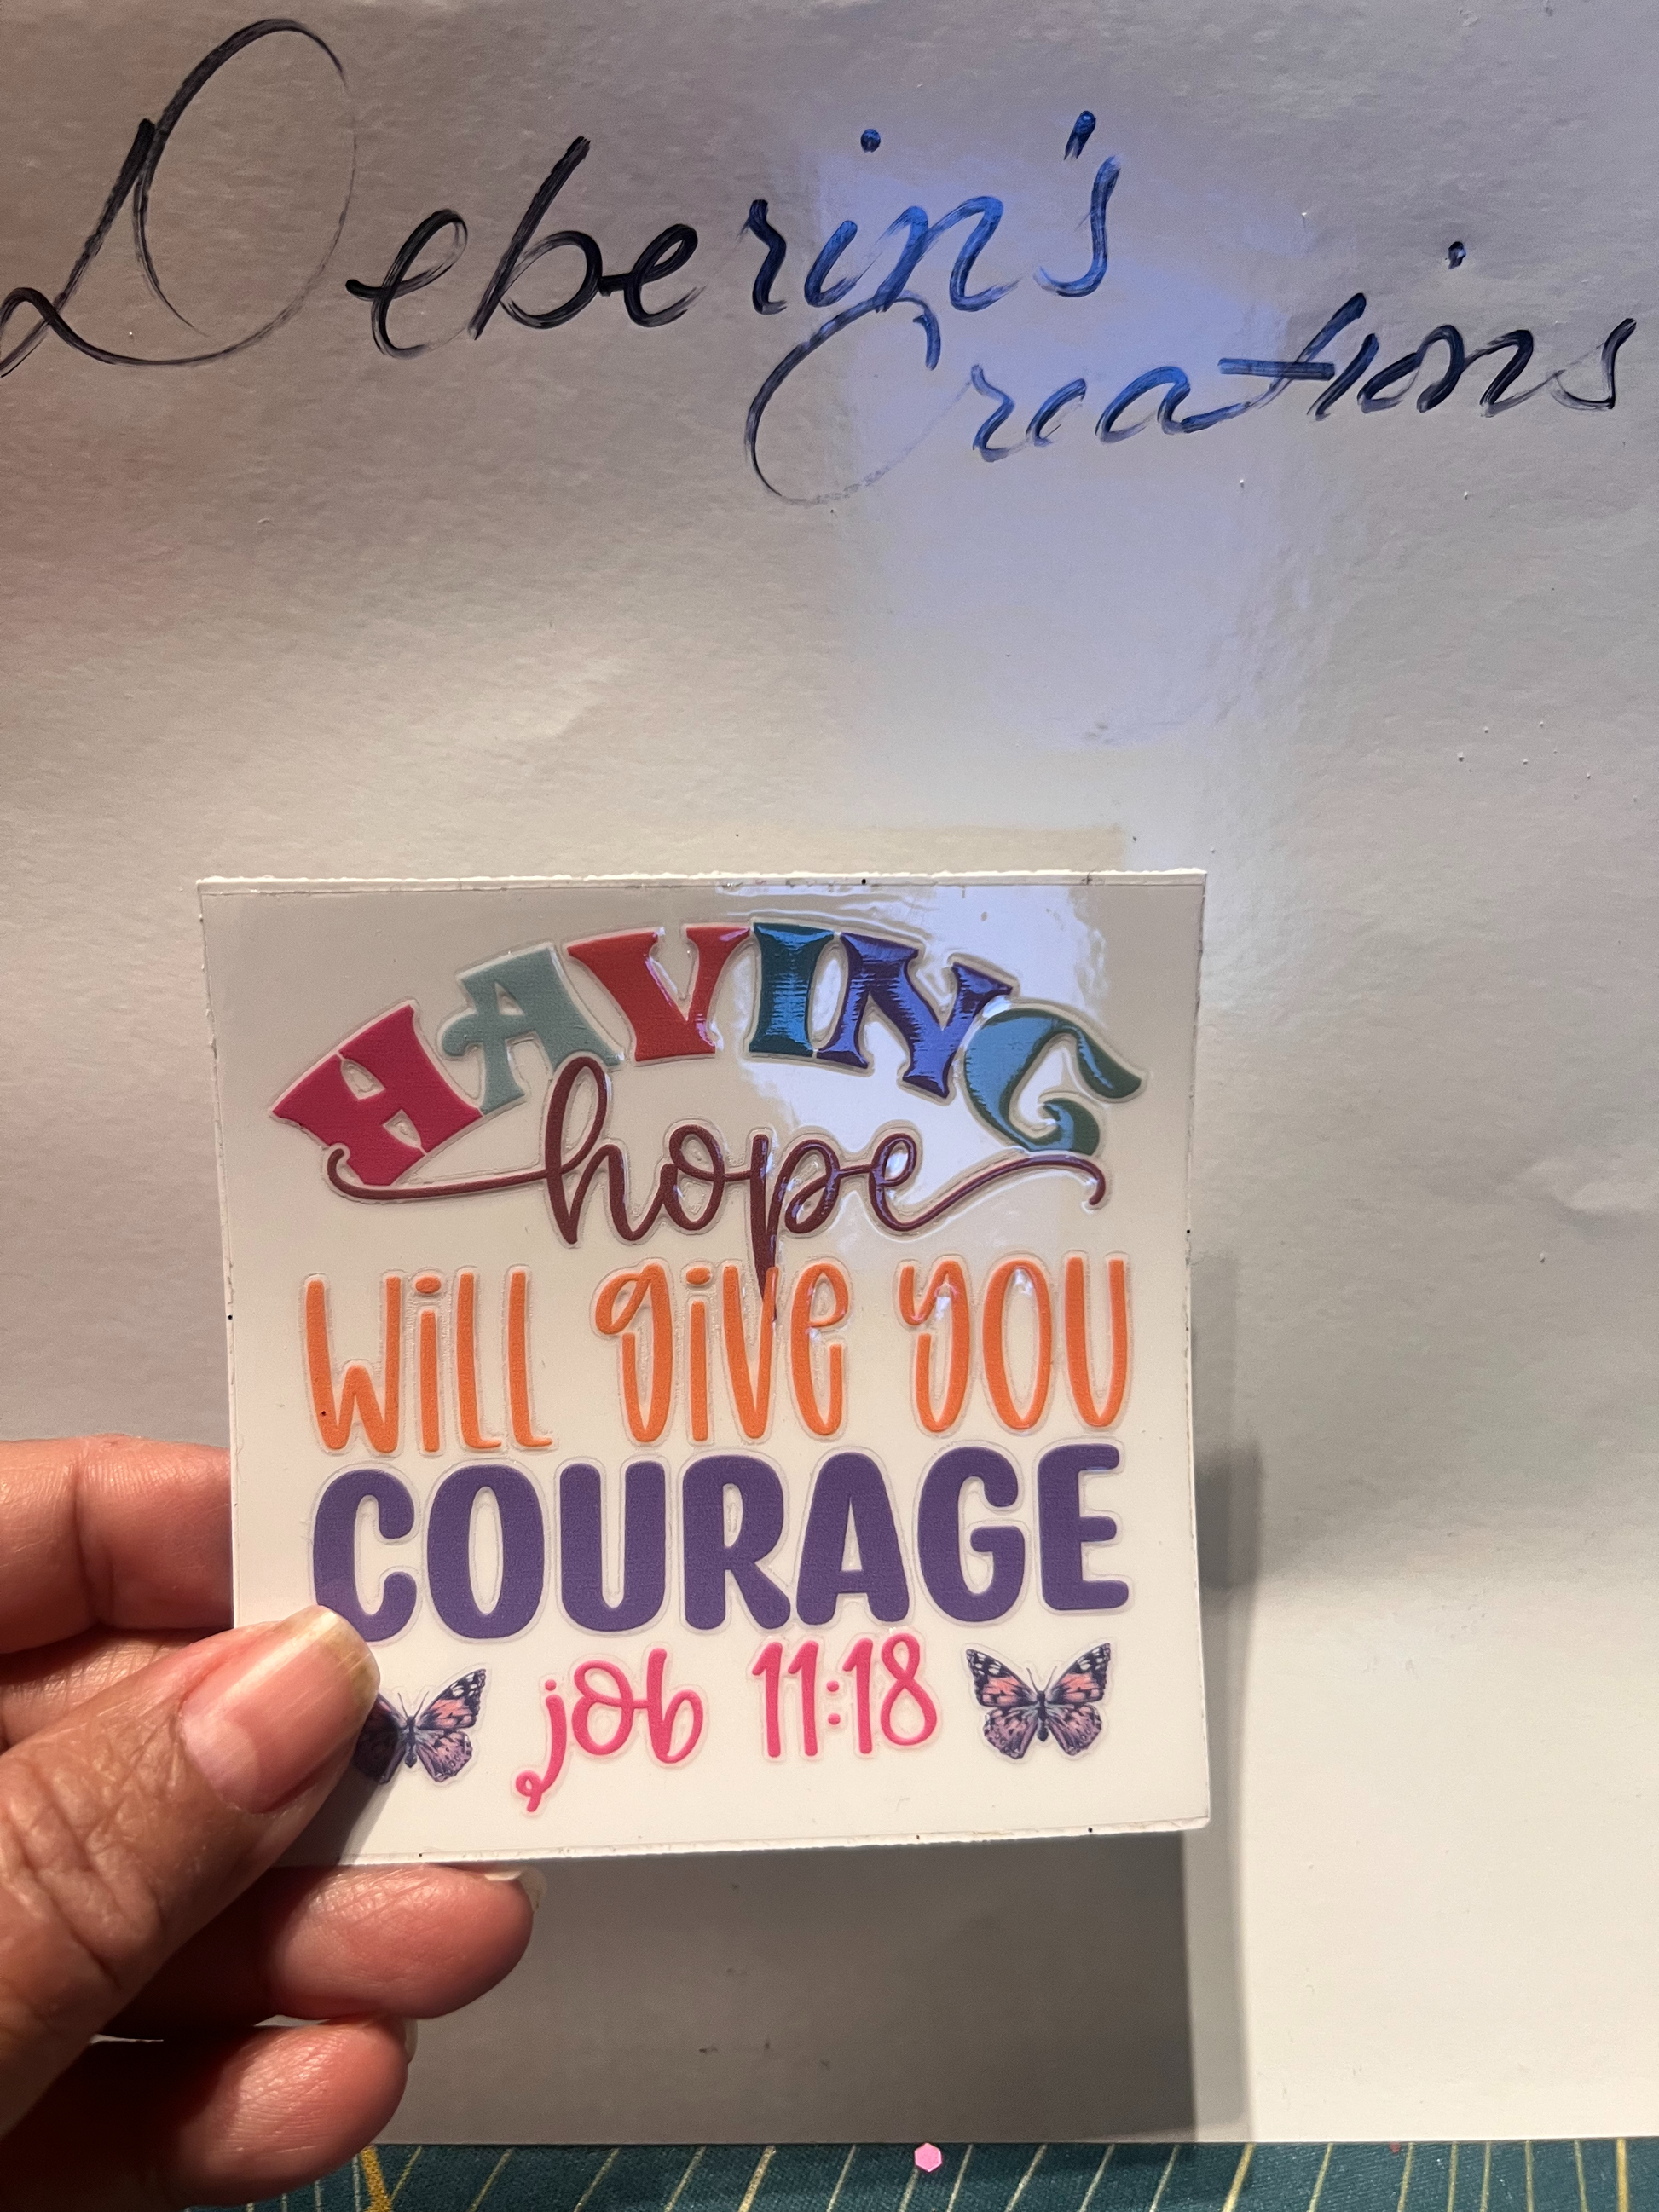 Deberin's
Creations
HAVING
hope
will give you
COURAGE
job 11:18